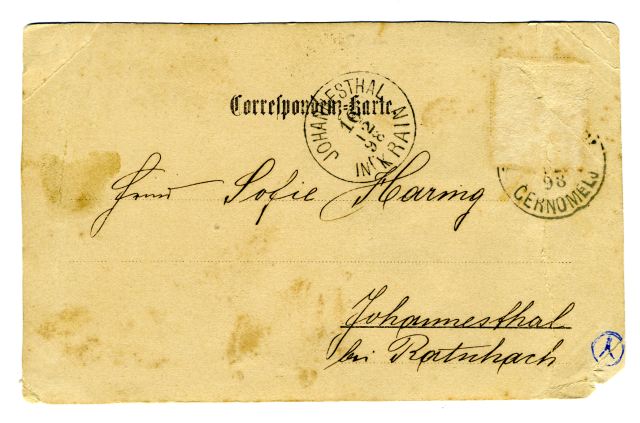 Correspondenz-Karte
JOHANNESTHAL IN KRAIN
16/2 98
98
CERNOMELJ
Sofie Haring
Johannesthal
bei Ratschach